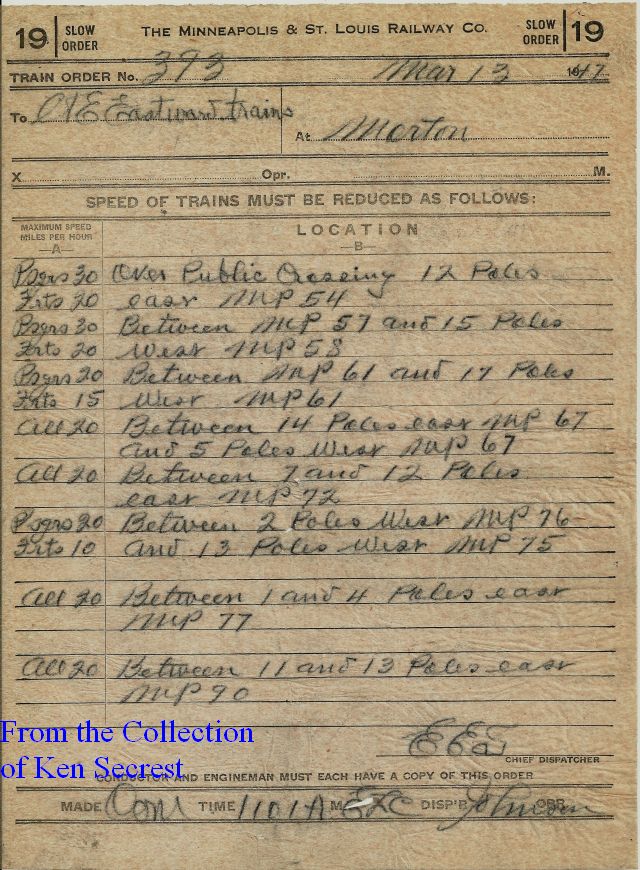 19 SLOW ORDER THE MINNEAPOLIS & ST. LOUIS RAILWAY CO. SLOW ORDER 19
TRAIN ORDER No. 393 Mar 13 1947
To C&E Eastward trains At Morton
X Opr. M.
SPEED OF TRAINS MUST BE REDUCED AS FOLLOWS:
MAXIMUM SPEED MILES PER HOUR —A— LOCATION —B—
Psgrs 30 Over Public Crossing 12 Poles
Frts 20 east MP 54
Psgrs 30 Between MP 57 and 15 Poles
Frts 20 West MP 58
Psgrs 20 Between MP 61 and 17 Poles
Frts 15 West MP 61
All 20 Between 14 Poles east MP 67
and 5 Poles West MP 67
All 20 Between 7 and 12 Poles
east MP 72
Psgrs 20 Between 2 Poles West MP 76
Frts 10 and 13 Poles West MP 75
All 20 Between 1 and 4 Poles east
MP 77
All 20 Between 11 and 13 Poles east
MP 90
CHIEF DISPATCHER
From the Collection
of Ken Secrest
CONDUCTOR AND ENGINEMAN MUST EACH HAVE A COPY OF THIS ORDER
MADE Com TIME 1101A M ELC DISP'R Johnson OPR.